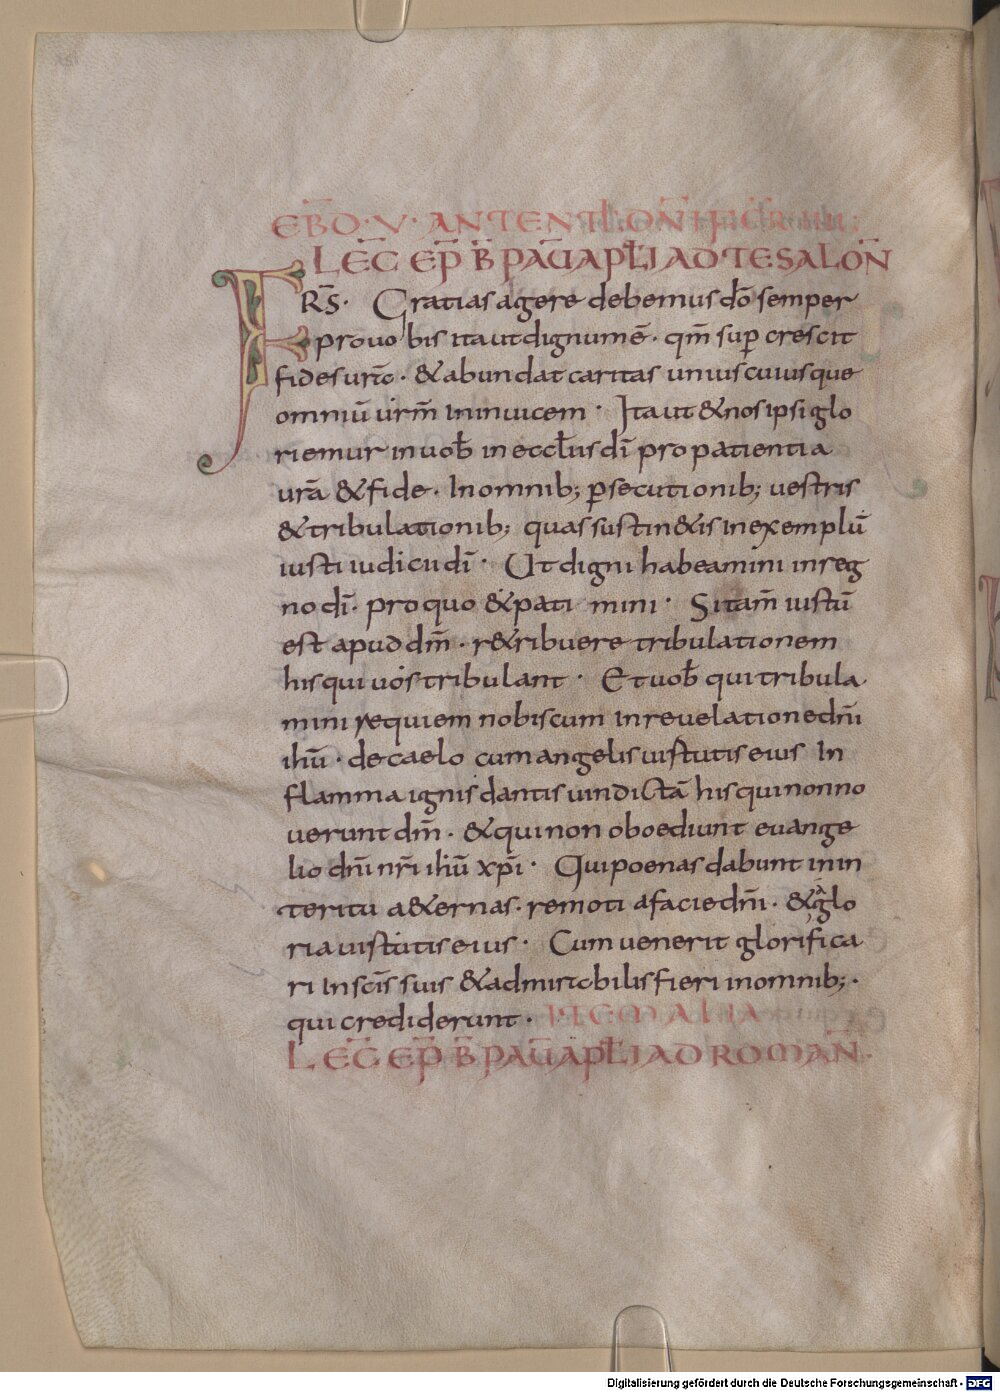 EB̄D·V· ANTE NTL̄ DN̄I
LEC̄ EP̄ B̄ PAŪ APL̄I AD TESALON̄
FRS̄· Gratias agere debemus dō semper
pro uobis ita ut dignum ē· qm̄ sup̄ crescit
fides urā· & abundat caritas uniuscuiusque
omniū ūrm̄ in inuicem· Ita ut & nos ipsi glo
riemur in uob̄ in eccl̄iis dī pro patientia
urā & fide· In omnib; p̄secutionib; uestris
& tribulationib; quas sustin&is in exemplū
iusti iudicii dī· Ut digni habeamini in reg
no dī· pro quo & pati mini· Si tam̄ iustū
est apud dm̄· r&ribuere tribulationem
his qui uos tribulant· Et uob̄ qui tribula
mini requiem nobiscum in reuelatione dn̄i
ih̄u· de caelo cum angelis uirtutis eius In
flamma ignis dantis uindictā his qui non no
uerunt dm̄· & qui non oboediunt euange
lio dn̄i nr̄i ih̄ū xp̄i· Qui poenas dabunt in in
teritu a&ernas· remoti a facie dn̄i· & a glo
ria uirtutis eius· Cum uenerit glorifica
ri in sc̄is suis & admirabilis fieri in omnib;·
qui crediderunt· ITEM ALIA
LEC̄ EP̄ B̄ PAŪ APL̄I AD ROMAN̄·
Digitalisierung gefördert durch die Deutsche Forschungsgemeinschaft - DFG